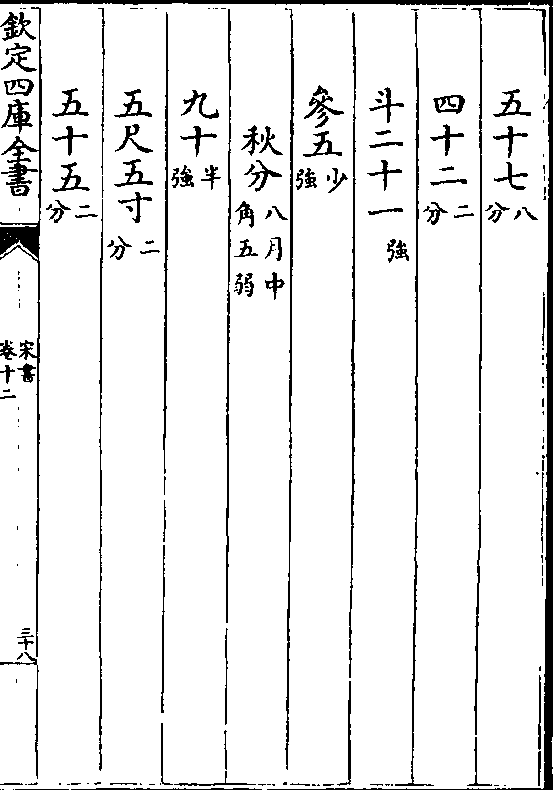 五十七八分
四十二二分
斗二十一強
參五少強
秋分八月中角五弱
九十半強
五尺五寸二分
五十五二分
欽定四庫全書
宋書
卷十二
三十八